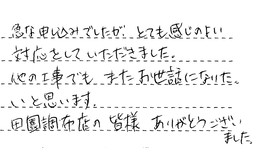 急な申し込みでしたが、とても感じのよい
対応をしていただきました。
他の工事でも またお世話になりた
いと思います。
田園調布店の皆様 ありがとうござい
ました。